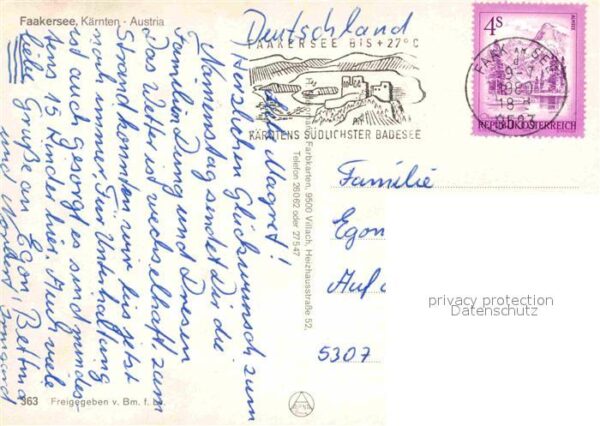 Faakersee, Kärnten · Austria
Deutschland
FAAKERSEE BIS +27°C
KÄRNTENS SÜDLICHSTER BADESEE
4S
REPUBLIK ÖSTERREICH
FAAK AM SEE
1980-18
9583
Liebe Magret!
Herzlichen Glückwunsch zum
Namenstag sendet Dir die
Familien Dung und Dresen
Das Wetter ist wechselhaft, zum
Strand konnten wir bis jetzt
noch. Für Unterhaltung
ist auch gesorgt es sind mindes-
tens 15 Kinder hier. Auch viele
liebe Grüße an Egon, Bettina
und Norbert, Irmgard
Farbkarten, 9500 Villach, Heizhausstraße 52,
Telefon 26062 oder 27547
Familie
Egon
Auf d
5307
privacy protection
Datenschutz
363 Freigegeben v. Bm. f.